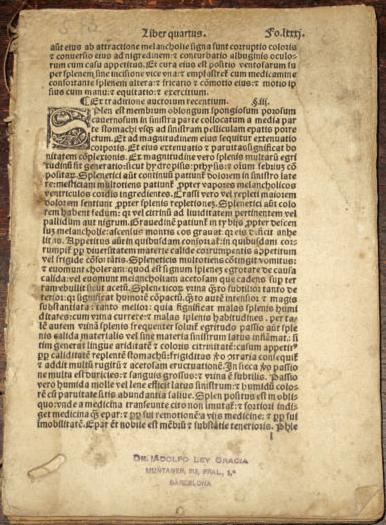 Liber quartus. Fo.lxxxj.
aūt eius ab attractione melancholie signa sunt corruptio coloris
& conuersio eius ad nigredinem: & conturbatio albuginis oculo-
rum cum casu appetitus. Et cura eius est positio ventosarum su
per splenem sine incisione vice vna: & emplastrū cum medicamine
confortante splenem altera: & fricatio & cōmotio eius: & motio ip
sius cum manu: & equitatio: & exercitium.
Ex traditione auctorum recentium. §iij.
Splen est membrum oblongum spongiosum porosum
cauernosum in sinistra parte collocatum a media par
te stomachi vsq; ad sinistram pelliculam epatis porre
ctum. Et ad magnitudinem eius sequitur extenuatio
corporis. Et eius extenuatio & paruitas significat bo
nitatem cōplexionis. Ex magnitudine vero splenis multarū egri
tudinū fit generatio: sicut hydropisis: pthysis: & olim febius cō
positaz. Splenetici aūt continuū patiunt dolorem in sinistro late
re: mesticiam multotiens patiunt propter vapores melancholicos
ventriculos cordis ingredientes. Crassi vero vel repleti maiorem
dolorem sentiunt propter splenis repletionez. Splenetici aūt colo
rem habent fedum: qui vel citrinū ad liuiditatem pertinentem vel
pallidum aut nigrum. Grauedinē patiunt in tybijs propter descen
sus melancholie: ascensus montis eos grauat: & eis
Appetitus aūt in quibusdam confortat: in quibusdam cor
rumpit propter diuersitatem materie calide corrumpentis appetitum
vel frigide cōfortātis. Spleneticis multotiens cōtingit vomitus:
& euomunt choleram: quod est signum splenez egrotare de causa
calida: vel euomunt melancholiam acetosam que cadens super ter
ram ebullit sicut acetū. Spleneticoz vrina
substantiata: tanto melior: quia significat malas splenis humi
ditates: cum vrina currere: & malas splenis habitudines.
lē autem vrinā splenis frequenter soluit egritudo passio aūt sple
nis calida materialis vel sine materia sinistrum latus inflāmat: si
tim generat lingue ariditatē & colorus citrinitatē: casum appetitus
propter caliditatē replentē stomachū: frigiditas
& addit multū rugitū & acetosam eructuationē. In sicca
ne multa est duricies: & sanguis grossus: & vrina & subtilis. Passio
vero humida molle vel lene efficit latus sinistrum: & humidū colo
rē cū paruitate sitis abundantia saliue. Splen positus est in obli
quo: vnde a medicina transeunte cito non imutat: & fortiori indi
get medicina epar: & propter sui remotionē a vijs medicine: & propter sui
imobilitatē. Epar est nobile est mēbrū & substātie tenerioris. Phle
l
DR. ADOLFO LEY GRACIA
MUNTANER, PRAL, 1.ª
BARCELONA